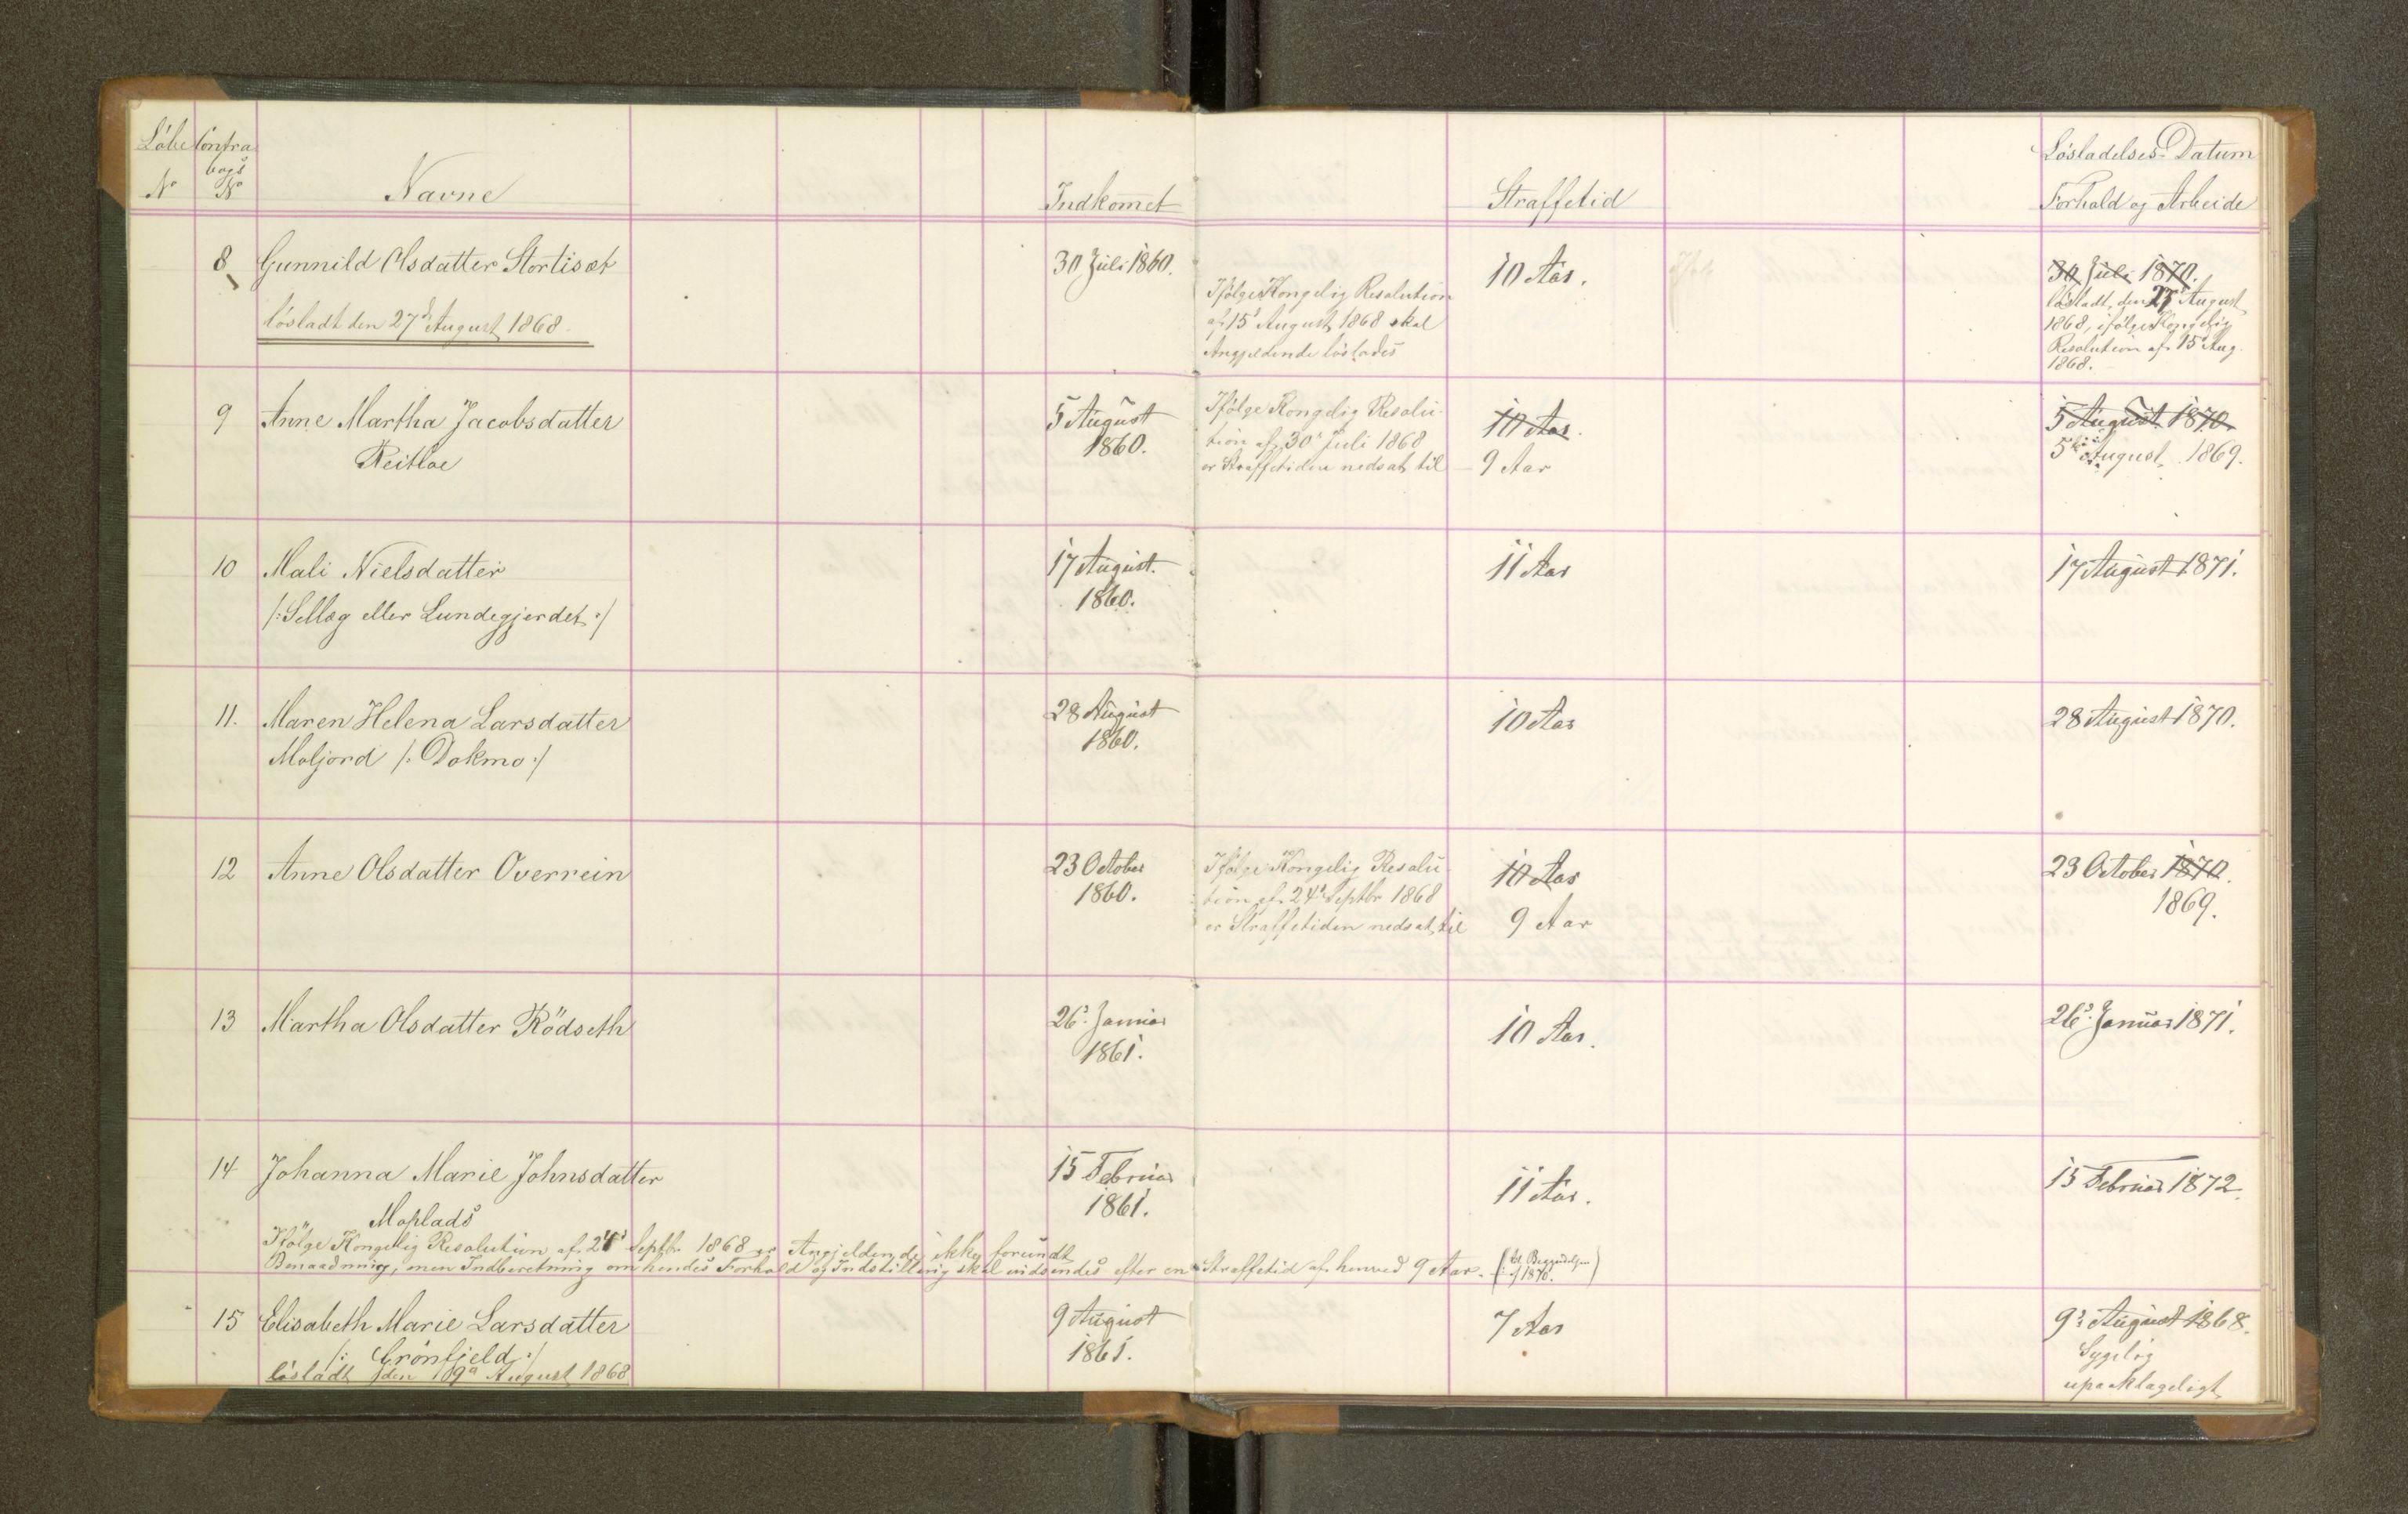 Löbe Contra
bogs
No No Navne Indkomet Straffetid Lösladelses-Datum
Forhold og Arbeide
8 Gunnild Olsdatter Stortisæt 30 Juli 1860. 10 Aar. 30 Juli 1870.
lösladt den 27de August 1868.
Ifölge Kongelig Resolution
af 15de August 1868 skal
Angjeldende löslades
lösladt den 27 August
1868, ifölge Kongelig
Resolution af 15 Aug.
1868.
9 Anne Martha Jacobsdatter
Reitloe
5 August
1860.
Ifölge Kongelig Resolu-
tion af 30te Juli 1868
er Straffetiden nedsat til
10 Aar.
9 Aar
5 August 1870.
5te August 1869.
10 Mali Nielsdatter
/: Sellæg eller Lundegjerdet :/
17 August.
1860.
11 Aar
17 August 1871.
11. Maren Helena Larsdatter
Moljord /: Dokmo :/
28 August
1860.
10 Aar
28 August 1870.
12 Anne Olsdatter Overrein
23 October
1860.
Ifölge Kongelig Resolu-
tion af 24de Septbr 1868
er Straffetiden nedsat til
10 Aar
9 Aar
23 October 1870.
1869.
13 Martha Olsdatter Rödseth
26de Januar
1861.
10 Aar.
26de Januar 1871.
14 Johanna Marie Johnsdatter
Moplads
15 Februar
1861.
11 Aar.
15 Februar 1872.
Ifölge Kongelig Resolution af 24de Septbr 1868 er Angjeldende ikke forundt
Benaadning, men Indberetning om hendes Forhold og Indstilling skal indsendes efter en Straffetid af henved 9 Aar.
af 1870.
15 Elisabeth Marie Larsdatter
/: Grönfjeld :/
lösladt den 9de August 1868
9 August
1861.
7 Aar
9de August 1868.
Sygelig
upaaklageligt